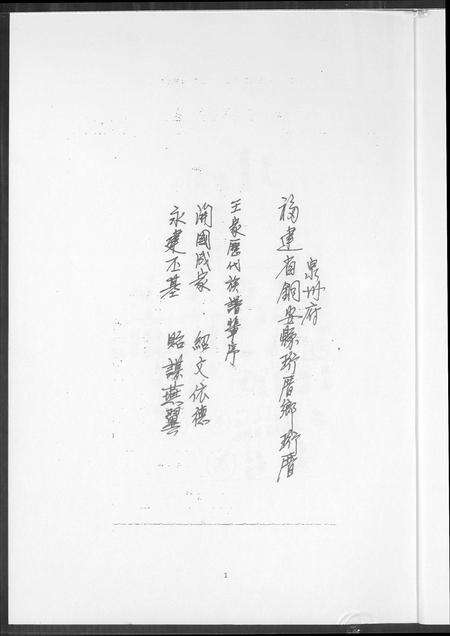 泉州府
福建省銅安縣珩厝鄉珩厝
王家歷代族譜輩序
開國成家 紹文依德
永建丕基 貽謀燕翼
1